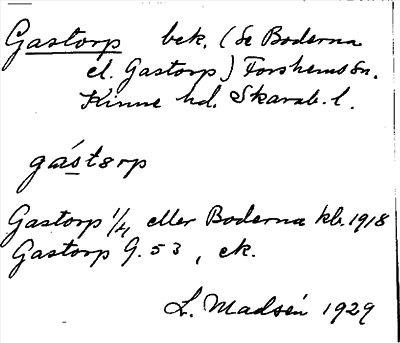 Gastorp bek. (Se Boderna
el. Gastorp) Forshems sn.
Kinne hd. Skarab. l.
gástørp
Gastorp 1/4 eller Boderna kb. 1918
Gastorp G. 53, ek.
L. Madsén 1929